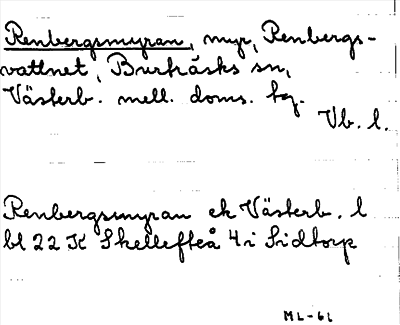 Renbergsmyran, myr, Renbergs-
vattnet, Burträsks sn,
Västerb. mell. doms. hz.
Vb. l.
Renbergsmyran ek Västerb. l
bl 22 K Skellefteå 4i Sidtorp
ML-61